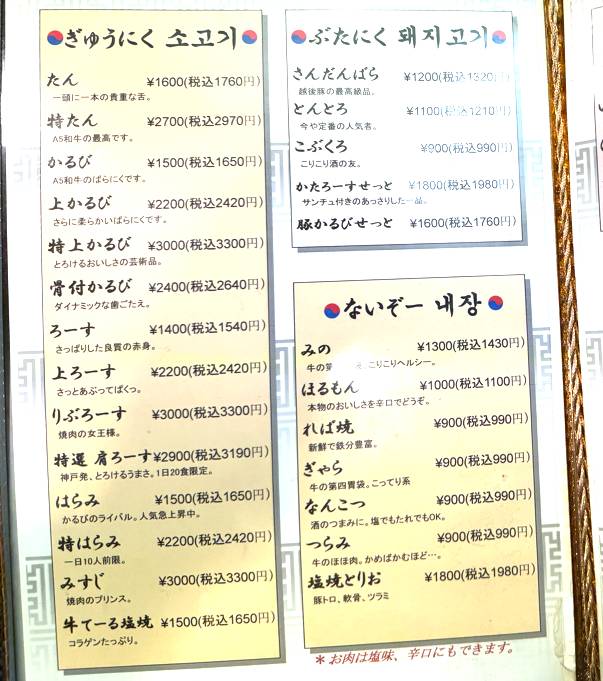 ぎゅうにく 소고기
たん ¥1600(税込1760円)
一頭に一本の貴重な舌。
特たん ¥2700(税込2970円)
A5和牛の最高です。
かるび ¥1500(税込1650円)
A5和牛のばらにくです。
上かるび ¥2200(税込2420円)
さらに柔らかいばらにくです。
特上かるび ¥3000(税込3300円)
とろけるおいしさの芸術品。
骨付かるび ¥2400(税込2640円)
ダイナミックな歯ごたえ。
ろーす ¥1400(税込1540円)
さっぱりした良質の赤身。
上ろーす ¥2200(税込2420円)
さっとあぶってぱくっ。
りぶろーす ¥3000(税込3300円)
焼肉の女王様。
特選 肩ろーす ¥2900(税込3190円)
神戸発、とろけるうまさ。1日20食限定。
はらみ ¥1500(税込1650円)
かるびのライバル。人気急上昇中。
特はらみ ¥2200(税込2420円)
一日10人前限。
みすじ ¥3000(税込3300円)
焼肉のプリンス。
牛てーる塩焼 ¥1500(税込1650円)
コラゲンたっぷり。
ぶたにく 돼지고기
さんだんばら ¥1200(税込1320円)
越後豚の最高級品。
とんとろ ¥1100(税込1210円)
今や定番の人気者。
こぶくろ ¥900(税込990円)
こりこり酒の友。
かたろーすせっと ¥1800(税込1980円)
サンチュ付きのあっさりした一品。
豚かるびせっと ¥1600(税込1760円)
ないぞー 내장
みの ¥1300(税込1430円)
牛の第 こりこりヘルシー。
ほるもん ¥1000(税込1100円)
本物のおいしさを辛口でどうぞ。
れば焼 ¥900(税込990円)
新鮮で鉄分豊富。
ぎゃら ¥900(税込990円)
牛の第四胃袋。こってり系
なんこつ ¥900(税込990円)
酒のつまみに。塩でもたれでもOK。
つらみ ¥900(税込990円)
牛のほほ肉。かめばかむほど…。
塩焼とりお ¥1800(税込1980円)
豚トロ、軟骨、ツラミ
＊お肉は塩味、辛口にもできます。